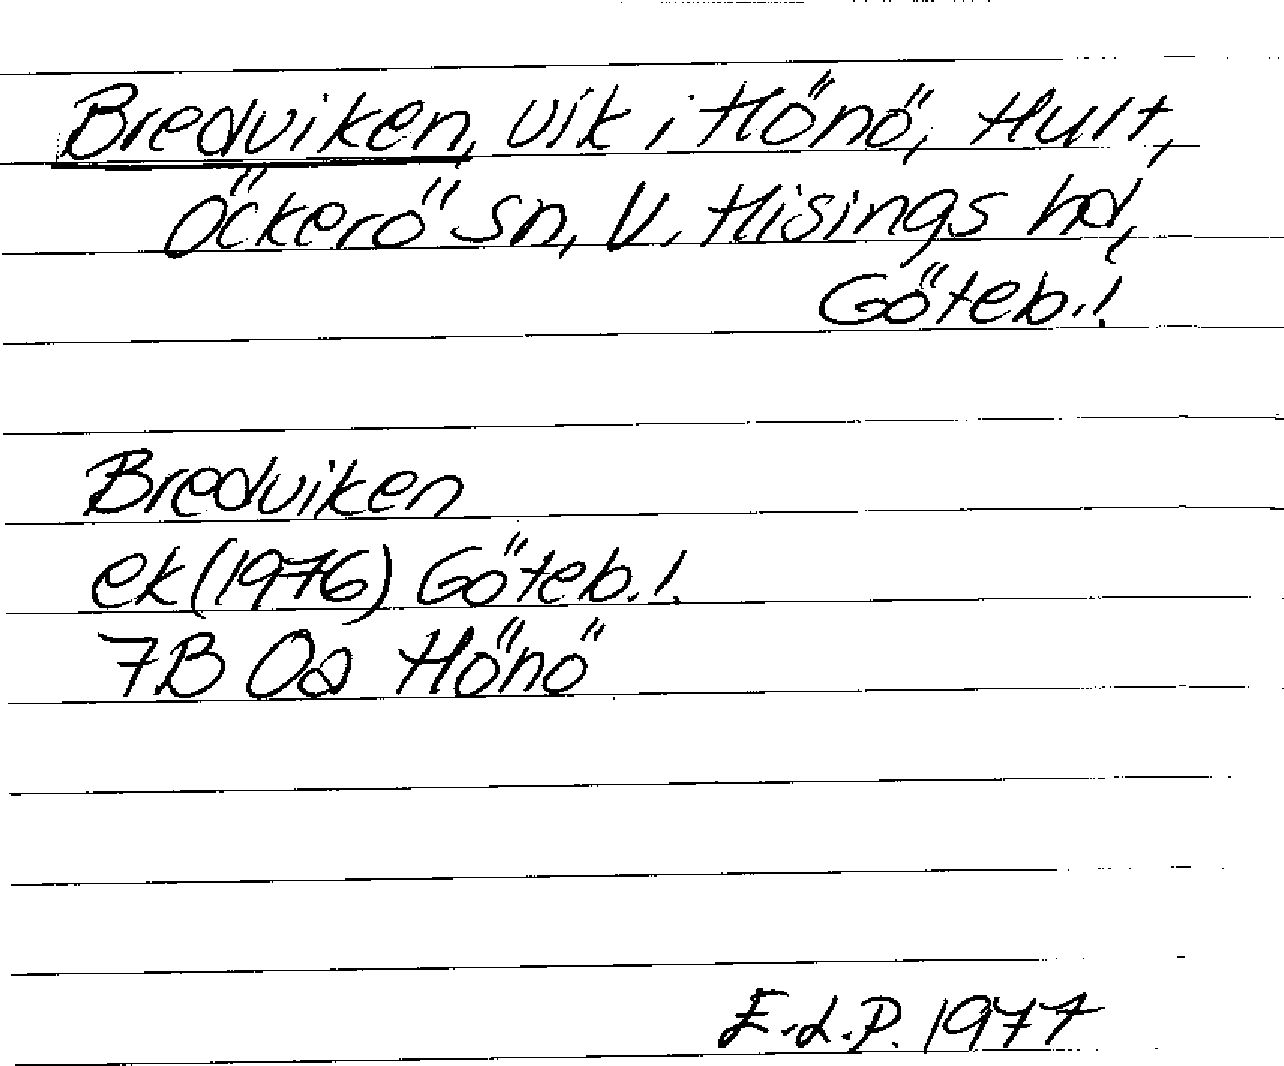 Bredviken, vik i Hönö, Hult,
Öckerö sn, V. Hisings hd,
Göteb.!
Bredviken
ek (1976) Göteb.!.
7B 0a Hönö
E.L.P. 1977